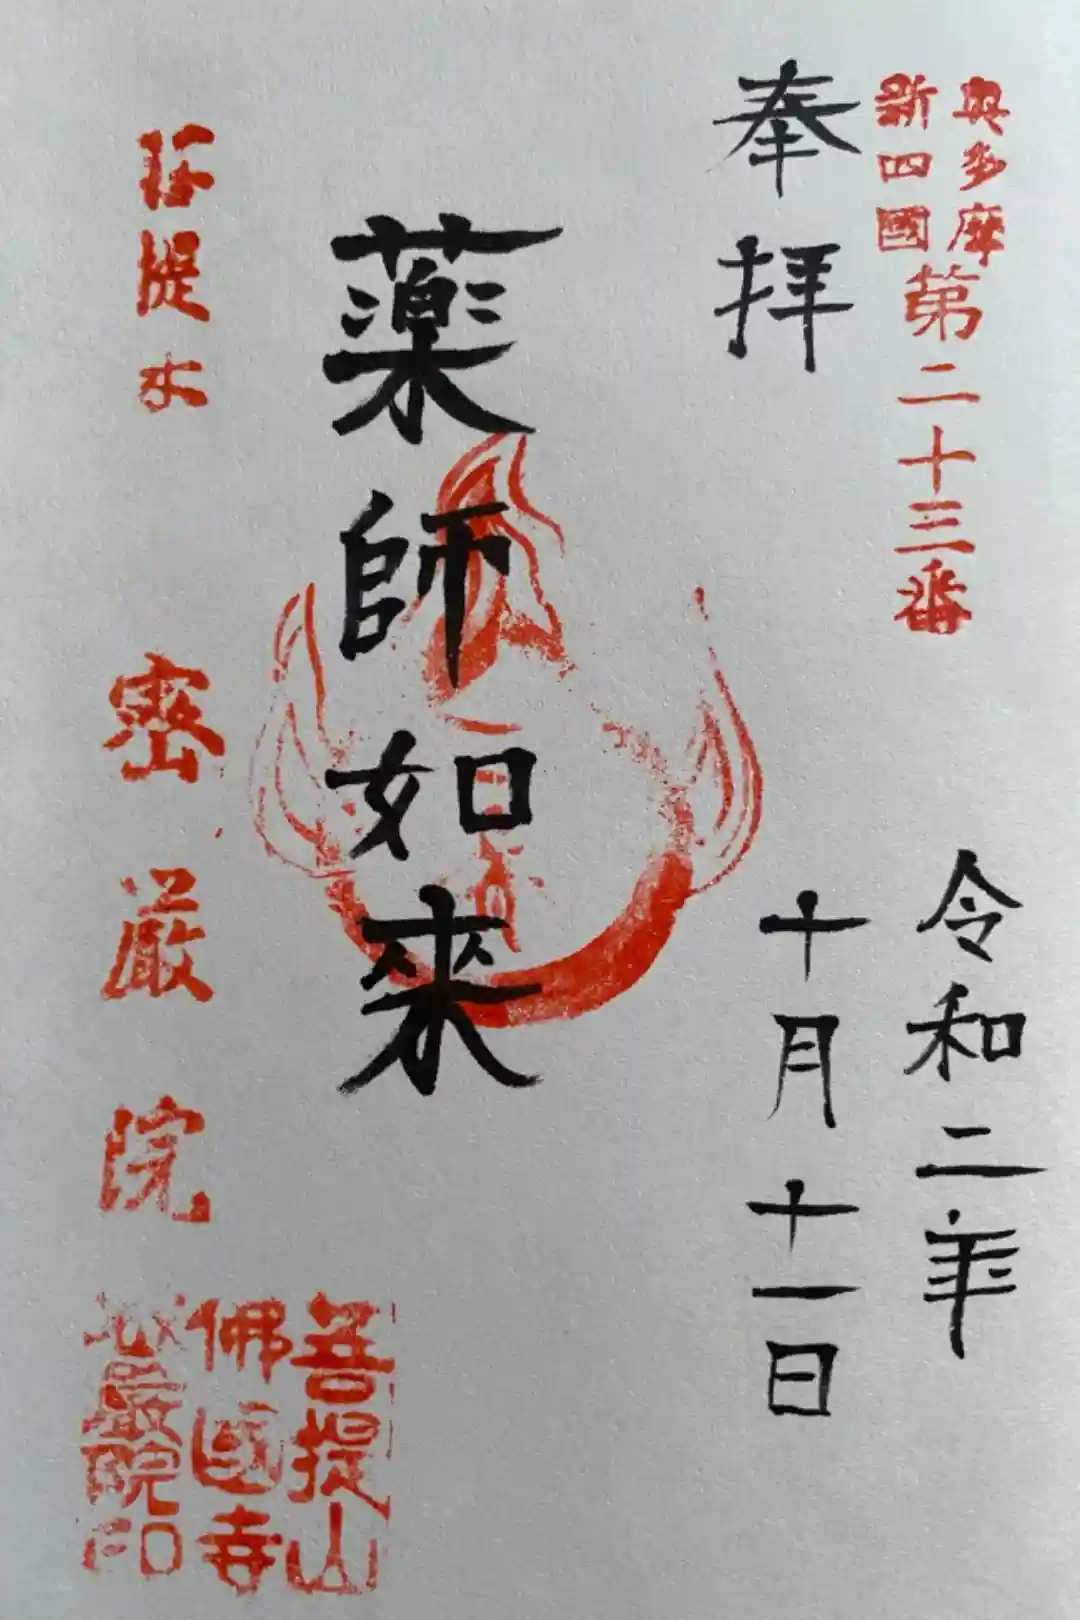 奥多摩
新四國
第二十三番
奉拝
令和二年
十月十一日
薬師如來
密厳院
菩提山
佛國寺
密嚴院印